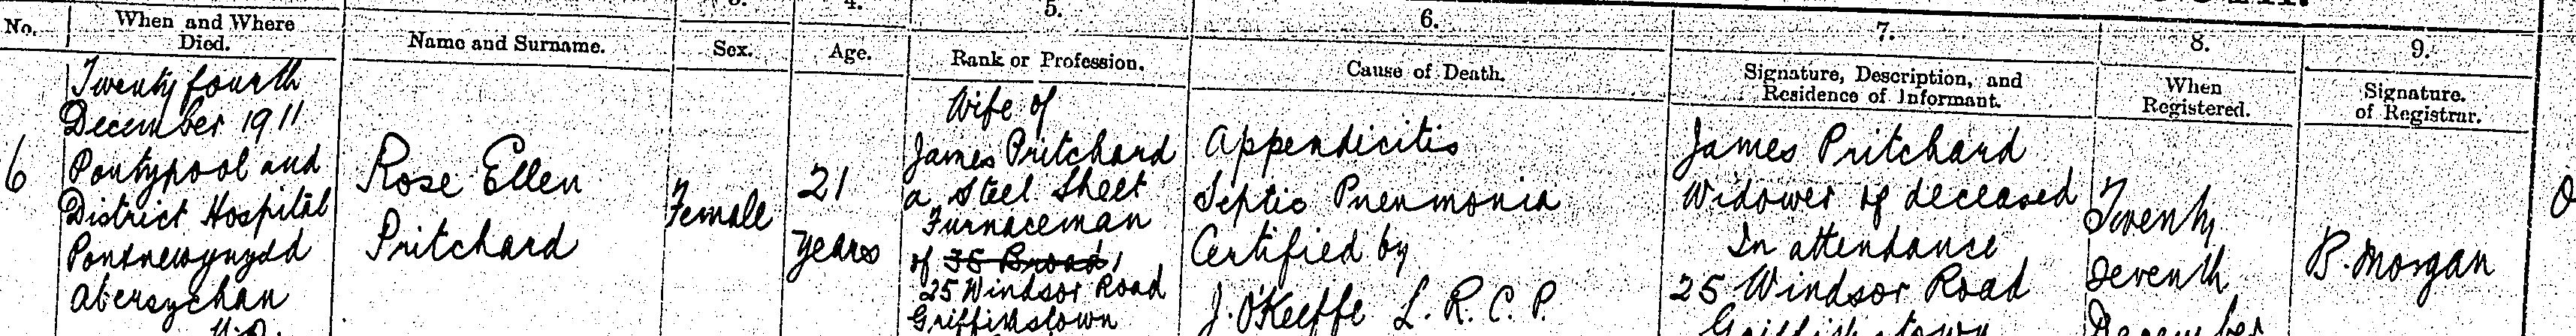 3. 4. 5. 6. 7. 8. 9.
No. When and Where Died. Name and Surname. Sex. Age. Rank or Profession. Cause of Death. Signature, Description, and Residence of Informant. When Registered. Signature of Registrar.
6
Twenty fourth
December 1911
Pontypool and
District Hospital
Pontnewynydd
Abersychan
U.D.
Rose Ellen
Pritchard
Female
21
years
Wife of
James Pritchard
a Steel Sheet
Furnaceman
of 35 Broad
25 Windsor Road
Griffithstown
Appendicitis
Septic Pneumonia
Certified by
J. O'Keeffe L. R. C. P.
James Pritchard
Widower of deceased
In attendance
25 Windsor Road
Griffithstown
Twenty
Seventh
December
B. Morgan